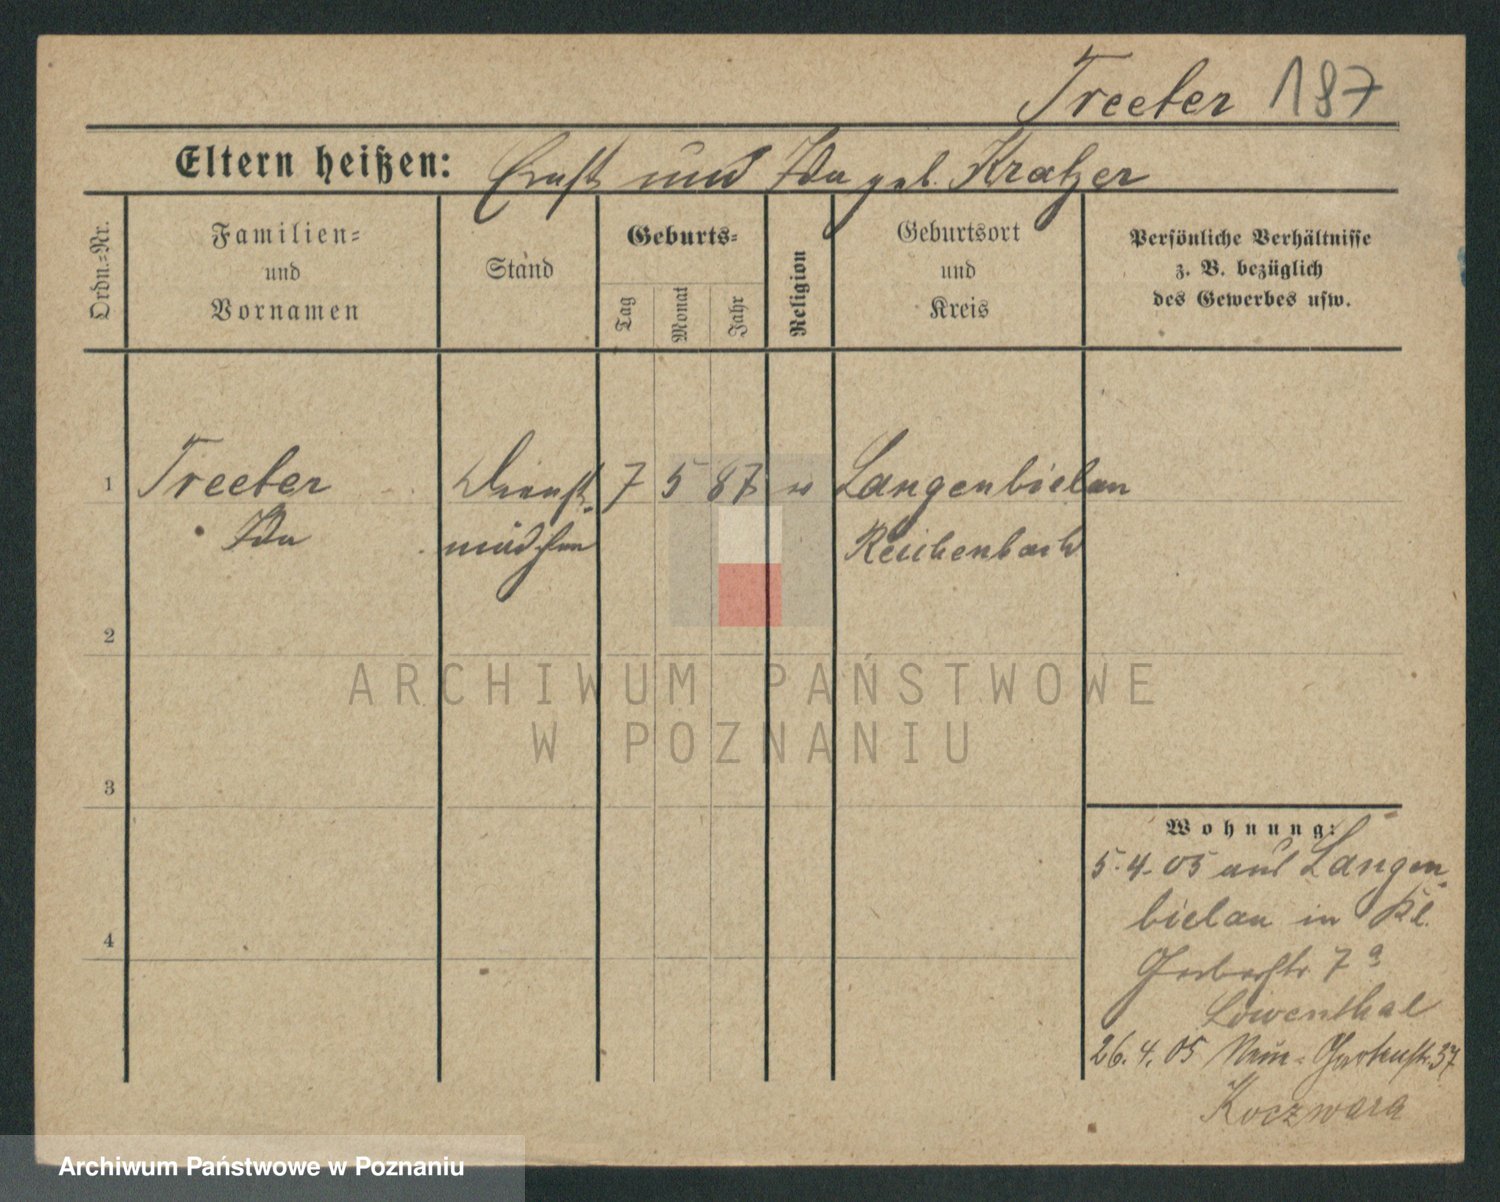 Treeber 187
Eltern heißen: Ernst und Ida geb. Kratzer
Ordn.-Nr.
Familien-
und
Vornamen
Stand
Geburts-
Tag
Monat
Jahr
Religion
Geburtsort
und
Kreis
Persönliche Verhältnisse
z. B. bezüglich
des Gewerbes usw.
1 Treeber Dienst- 7 5 87 Langenbielau
Ida mädchen Reichenbach
2
3
4
Wohnung:
5.4.05 aus Langen-
bielau in Kl.
Gerberstr 7a
Löwenthal
26.4.05 Neue-Gartenstr. 37
Koczwara
ARCHIWUM PAŃSTWOWE
W POZNANIU
Archiwum Państwowe w Poznaniu